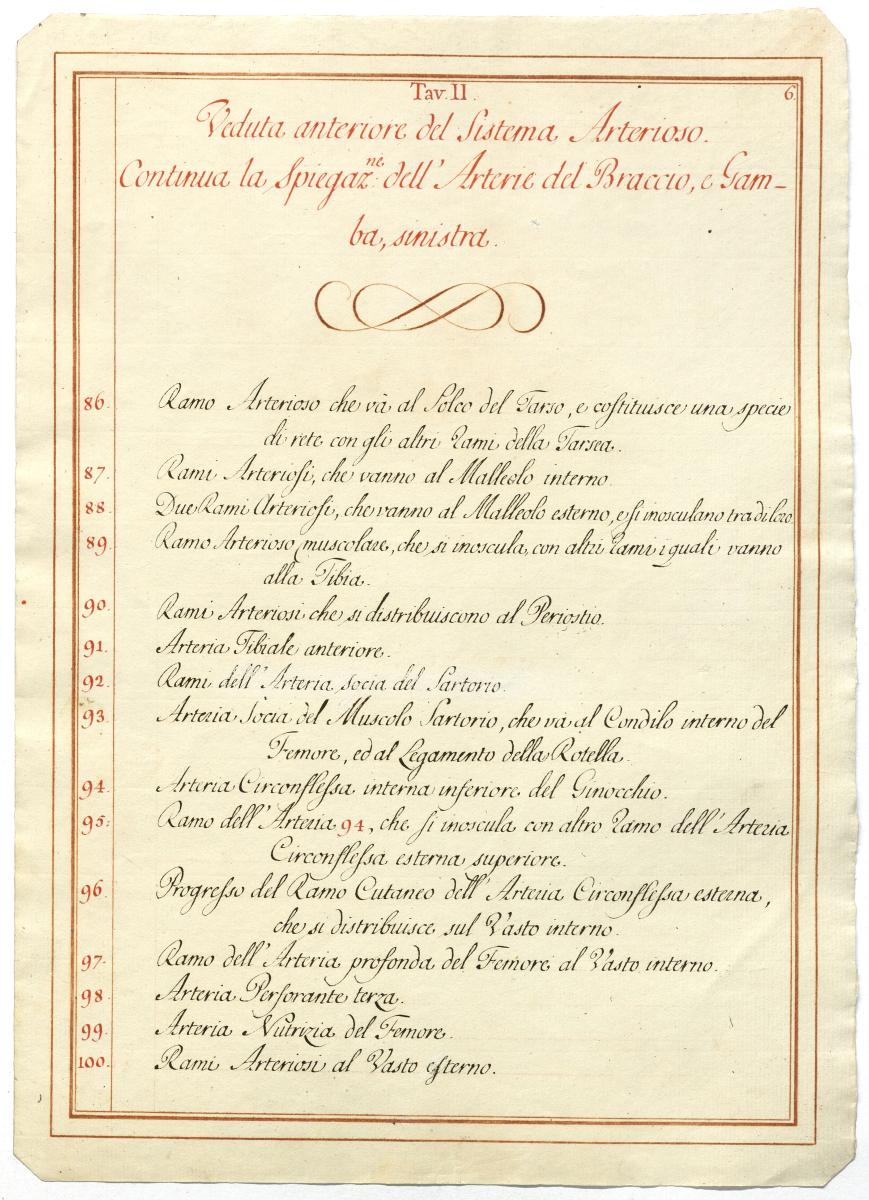 Tav. II.
6.
Veduta anteriore del Sistema Arterioso.
Continua la Spiegaz.ne dell'Arterie del Braccio, e Gam-
ba, sinistra.
86. Ramo Arterioso che và al Solco del Tarso, e costituisce una specie
di rete con gli altri rami della Tarsea.
87. Rami Arteriosi, che vanno al Malleolo interno.
88. Due Rami Arteriosi, che vanno al Malleolo esterno, e si inosculano tra di loro.
89. Ramo Arterioso muscolare, che si inoscula, con altri rami i quali vanno
alla Tibia.
90. Rami Arteriosi che si distribuiscono al Periostio.
91. Arteria Tibiale anteriore.
92. Rami dell'Arteria socia del Sartorio.
93. Arteria Socia del Muscolo Sartorio, che và al Condilo interno del
Femore, ed al Legamento della Rotella.
94. Arteria Circonflessa interna inferiore del Ginocchio.
95: Ramo dell'Arteria 94, che si inoscula con altro ramo dell'Arteria
Circonflessa esterna superiore.
96. Progresso del Ramo Cutaneo dell'Arteria Circonflessa esterna,
che si distribuisce sul Vasto interno.
97. Ramo dell'Arteria profonda del Femore al Vasto interno.
98. Arteria Perforante terza.
99. Arteria Nutrizia del Femore.
100. Rami Arteriosi al Vasto esterno.